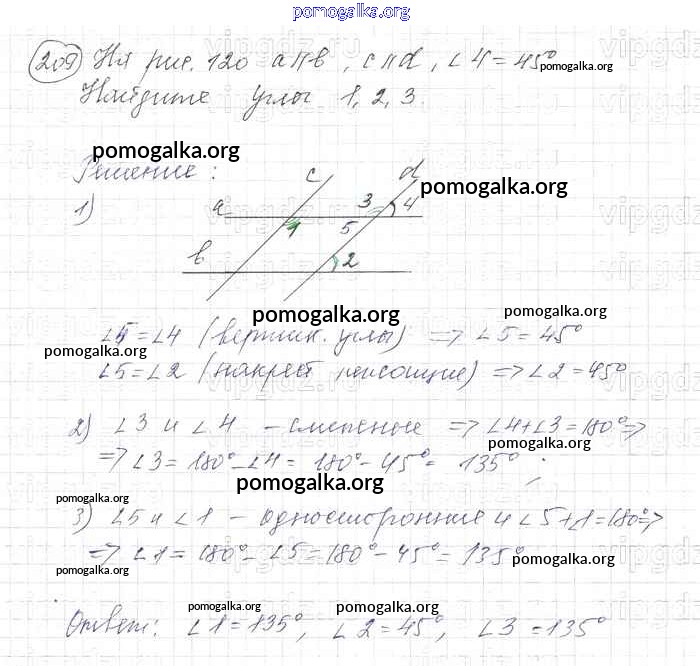 pomogalka.org
209 На рис. 120 a || b, c || d, ∠4 = 45°
pomogalka.org
Найдите углы 1, 2, 3.
pomogalka.org
Решение:
pomogalka.org
1)
c d
a 3 4
1 5
b 2
pomogalka.org
pomogalka.org
∠5 = ∠4 (вертик. углы) => ∠5 = 45°
pomogalka.org
∠5 = ∠2 (накрест лежащие) => ∠2 = 45°
2) ∠3 и ∠4 – смежные => ∠4 + ∠3 = 180° =>
pomogalka.org
=> ∠3 = 180° – ∠4 = 180° – 45° = 135°;
pomogalka.org
pomogalka.org
3) ∠5 и ∠1 – односторонние и ∠5 + ∠1 = 180° =>
=> ∠1 = 180° – ∠5 = 180° – 45° = 135°
pomogalka.org
pomogalka.org
pomogalka.org
pomogalka.org
Ответ: ∠1 = 135°, ∠2 = 45°, ∠3 = 135°